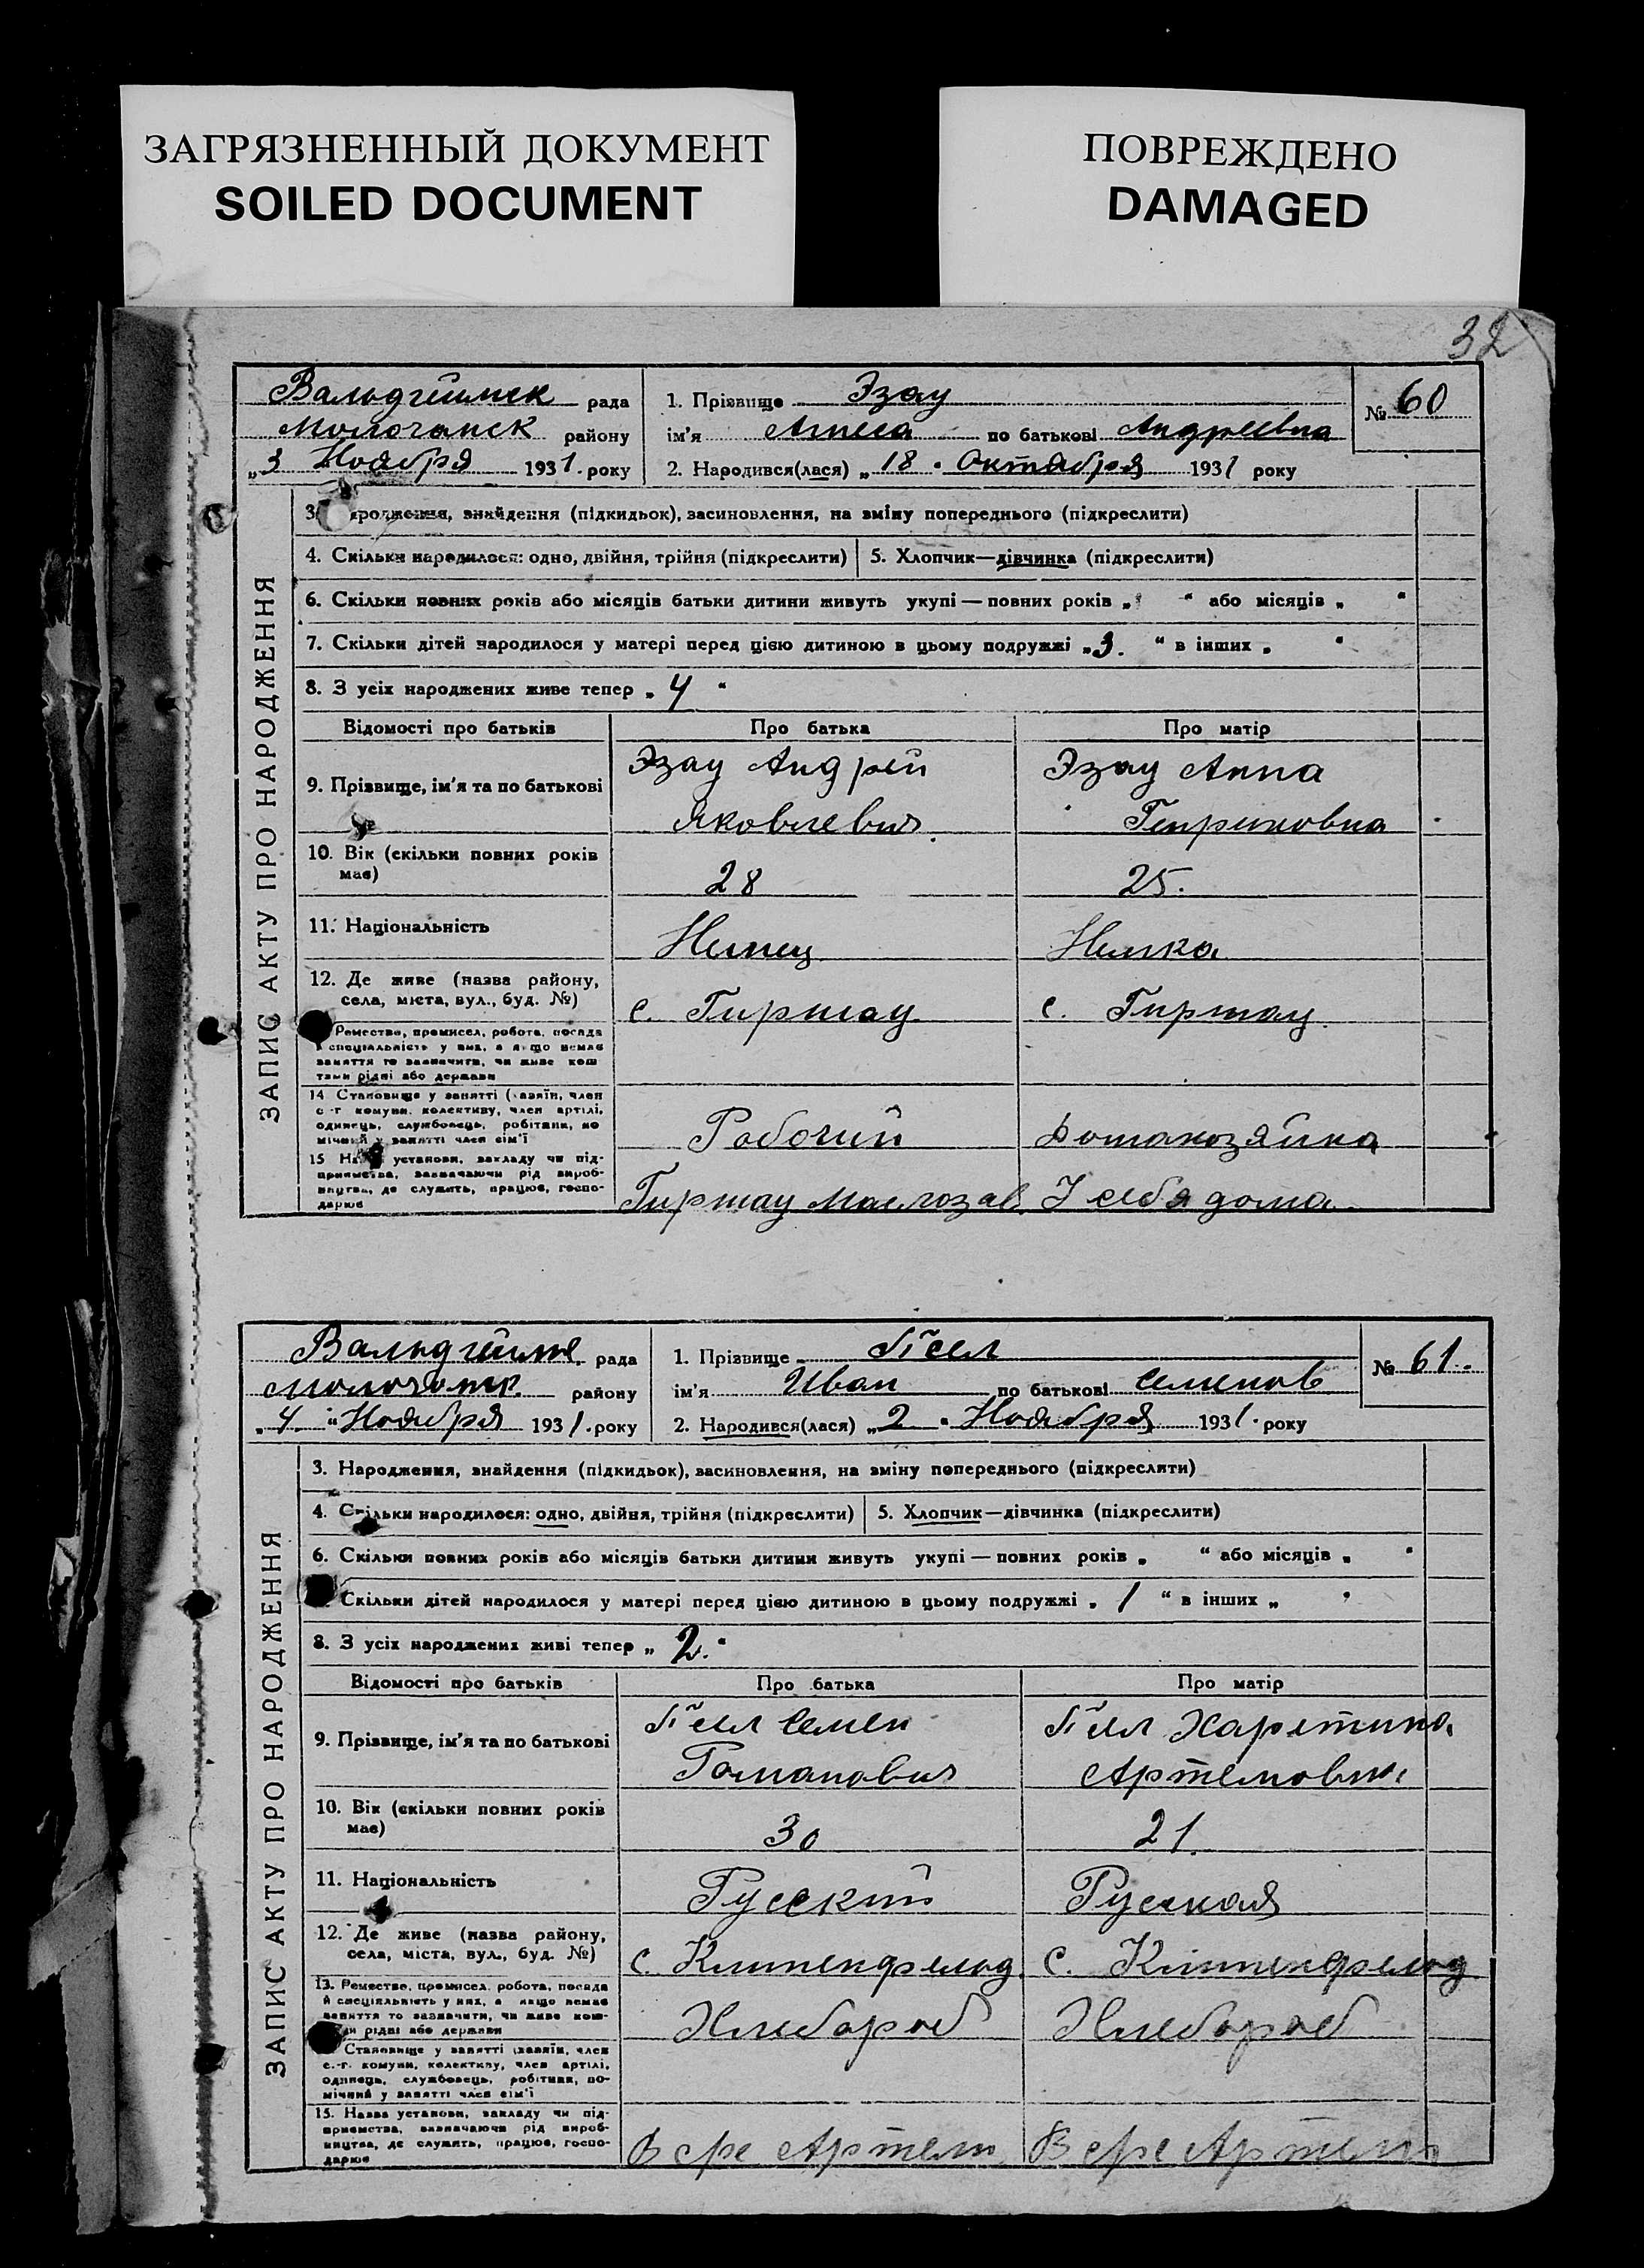 ЗАГРЯЗНЕННЫЙ ДОКУМЕНТ
SOILED DOCUMENT
ПОВРЕЖДЕНО
DAMAGED
32
Вальдгеймск рада
Молочанск району
„3 Ноября 1931. року
1. Прізвище Эзау
ім'я Агнеса по батькові Андреевна
2. Народився(лася) „18 " Октября 1931 року
№ 60
ЗАПИС АКТУ ПРО НАРОДЖЕННЯ
3. народження, знайдення (підкидьок), засиновлення, на зміну попереднього (підкреслити)
4. Скільки народилося: одно, двійня, трійня (підкреслити) 5. Хлопчик—дівчинка (підкреслити)
6. Скільки повних років або місяців батьки дитини живуть укупі — повних років „ “ або місяців „ “
7. Скільки дітей народилося у матері перед цією дитиною в цьому подружжі „3. “ в інших „ “
8. З усіх народжених живе тепер „ 4 “
Відомості про батьків Про батька Про матір
9. Прізвище, ім'я та по батькові Эзау Андрей Эзау Анна
Яковлевич Генриховна
10. Вік (скільки повних років має) 28 25.
11. Національність Немец Немка
12. Де живе (назва району,
села, міста, вул., буд. №) с. Гиршау с. Гиршау
Ремество, промисел, робота, посада
й спеціальність у них, а якщо немає
заняття то зазначити, чи живе кош
тами рідні або держави
14 Становище у занятті (хазяїн, член
с.-г комуни, колективу, член артілі,
одинець, службовець, робітник, по
мічний у занятті член сім'ї Рабочий Домахозяйка
15 Назва установи, закладу чи під-
приємства, зазначаючи рід вироб-
ництва, де служить, працює, госпо-
дарює Гиршау Маслозав. У себя дома
Вальдгейме. рада
району
„4. “ Ноября 1931. року
1. Прізвище
ім'я Иван по батькові Семенов
2. Народився(лася) „2 " Ноября 1931. року
№ 61.
ЗАПИС АКТУ ПРО НАРОДЖЕННЯ
3. Народження, знайдення (підкидьок), засиновлення, на зміну попереднього (підкреслити)
4. Скільки народилося: одно, двійня, трійня (підкреслити) 5. Хлопчик—дівчинка (підкреслити)
6. Скільки повних років або місяців батьки дитини живуть укупі — повних років „ “ або місяців „ “
Скільки дітей народилося у матері перед цією дитиною в цьому подружжі „ 1 “ в інших „ “
8. З усіх народжених живі тепер „ 2. “
Відомості про батьків Про батька Про матір
9. Прізвище, ім'я та по батькові Семен
Романович Артемовна
10. Вік (скільки повних років має) 30 21.
11. Національність Русский Русская
12. Де живе (назва району,
села, міста, вул., буд. №) с. Клипенфельд. с. Клипенфельд
13. Ремество, промисел, робота, посада
й спеціальність у них, а якщо немає
заняття то зазначити, чи живе кош-
тами рідні або держави Хлебороб Хлебороб
Становище у занятті (хазяїн, член
с.-г. комуни, колективу, член артілі,
одинець, службовець, робітник, по-
мічний у занятті член сім'ї
15. Назва установи, закладу чи під-
приємства, зазначаючи рід вироб-
ництва, де служить, працює, госпо-
дарює В Артели В Артели